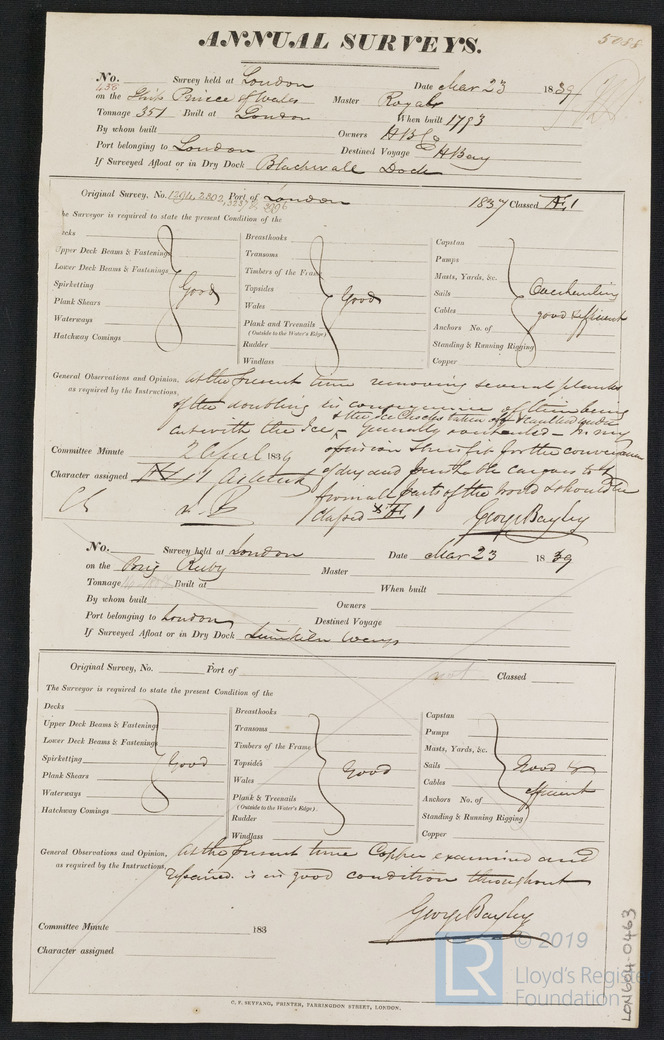 5088
ANNUAL SURVEYS.
No. 438 Survey held at London Date Mar 23 1839
on the Ship Prince of Wales Master Royal
Tonnage 351 Built at London When built 1793
By whom built Owners HBCo
Port belonging to London Destined Voyage HBay
If Surveyed Afloat or in Dry Dock Blackwall Dock
Original Survey, No. 1294, 2802, 3206 Port of London 1837 Classed Æ 1
he Surveyor is required to state the present Condition of the
ecks
Upper Deck Beams & Fastenings
Lower Deck Beams & Fastenings
Spirketting Good
Plank Shears
Waterways
Hatchway Comings
Breasthooks
Transoms
Timbers of the Frame
Topsides Good
Wales
Plank and Treenails
(Outside to the Water's Edge)
Rudder
Windlass
Capstan
Pumps
Masts, Yards, &c.
Sails Overhauling
Cables good & efficient
Anchors No. of
Standing & Running Rigging
Copper
General Observations and Opinion, At the present time removing several planks
as required by the Instructions, of the doubling in consequence of their being
& the Ice Chocks taken off & caulked under
cut with the Ice - generally - In my
Committee Minute 2 April 1839 opinion She is fit for the conveyance
Character assigned of dry and perishable cargoes to &
from all parts of the world & should be
Classed Æ 1
George Bayley
No. Survey held at London Date Mar 23 1839
on the Brig Ruby Master
Tonnage Built at When built
By whom built Owners
Port belonging to London Destined Voyage
If Surveyed Afloat or in Dry Dock Limekiln
Original Survey, No. Port of not Classed
The Surveyor is required to state the present Condition of the
Decks
Upper Deck Beams & Fastenings
Lower Deck Beams & Fastenings
Spirketting Good
Plank Shears
Waterways
Hatchway Comings
Breasthooks
Transoms
Timbers of the Frame
Topsides Good
Wales
Plank & Treenails
(Outside to the Water's Edge)
Rudder
Windlass
Capstan
Pumps
Masts, Yards, &c.
Sails Good &
Cables efficient
Anchors No. of
Standing & Running Rigging
Copper
General Observations and Opinion, At the present time Copper examined and
as required by the Instructions, repaired. is in good condition throughout
George Bayley
Committee Minute 183
Character assigned
C. F. SEYFANG, PRINTER, FARRINGDON STREET, LONDON.
LR © 2019
Lloyd's Register
Foundation
LON604-0463